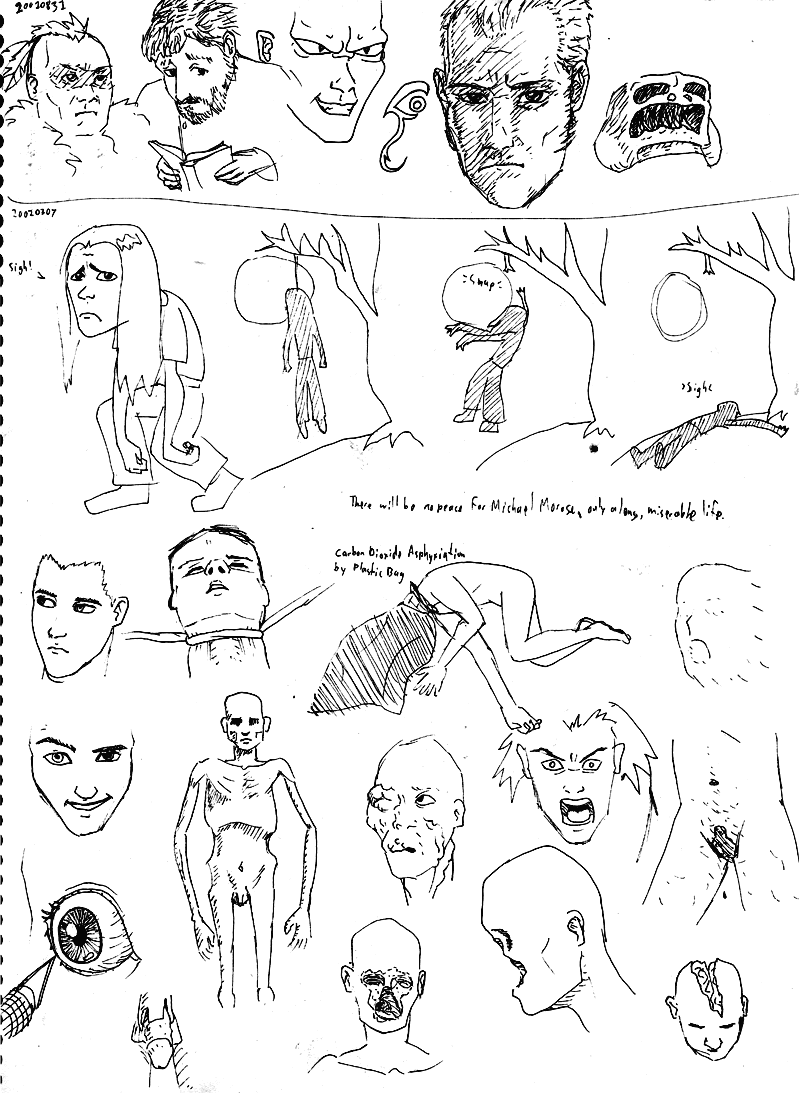 20020831
20020207
Sigh!
:Snap:
>Sigh<
There will be no peace for Michael Morose, only a long, miserable life.
Carbon Dioxide Asphyxiation
by Plastic Bag